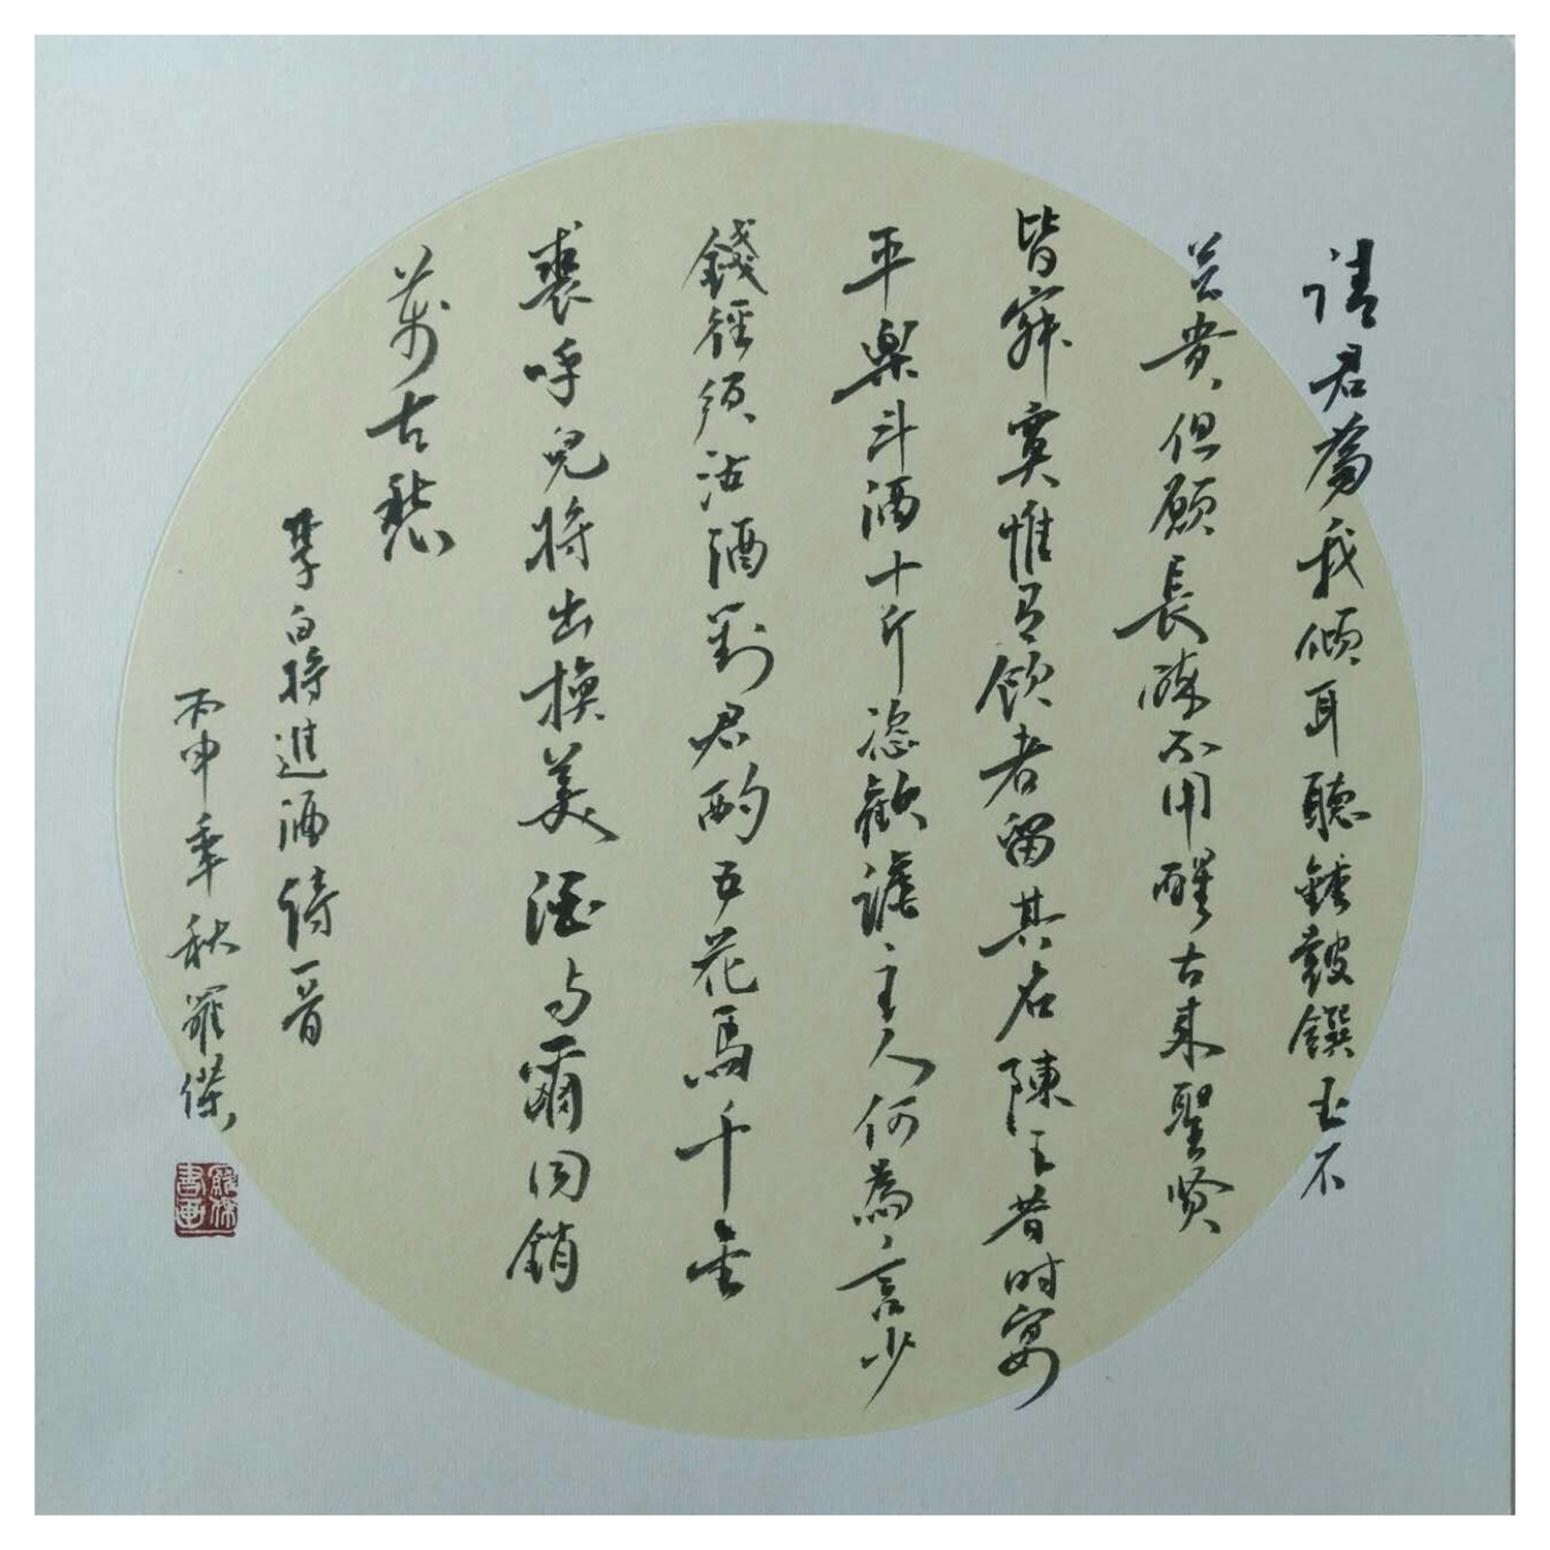 請君為我傾耳聽鍾鼓饌玉不
足貴但願長醉不用醒古來聖賢
皆寂寞惟有飲者留其名陳王昔时宴
平樂斗酒十斤恣歡謔主人何為言少
錢徑須沽酒對君酌五花馬千金
裘呼兒將出換美酒与爾同銷
萬古愁
李白將進酒詩一首
丙申年秋羅傑
羅傑書畫